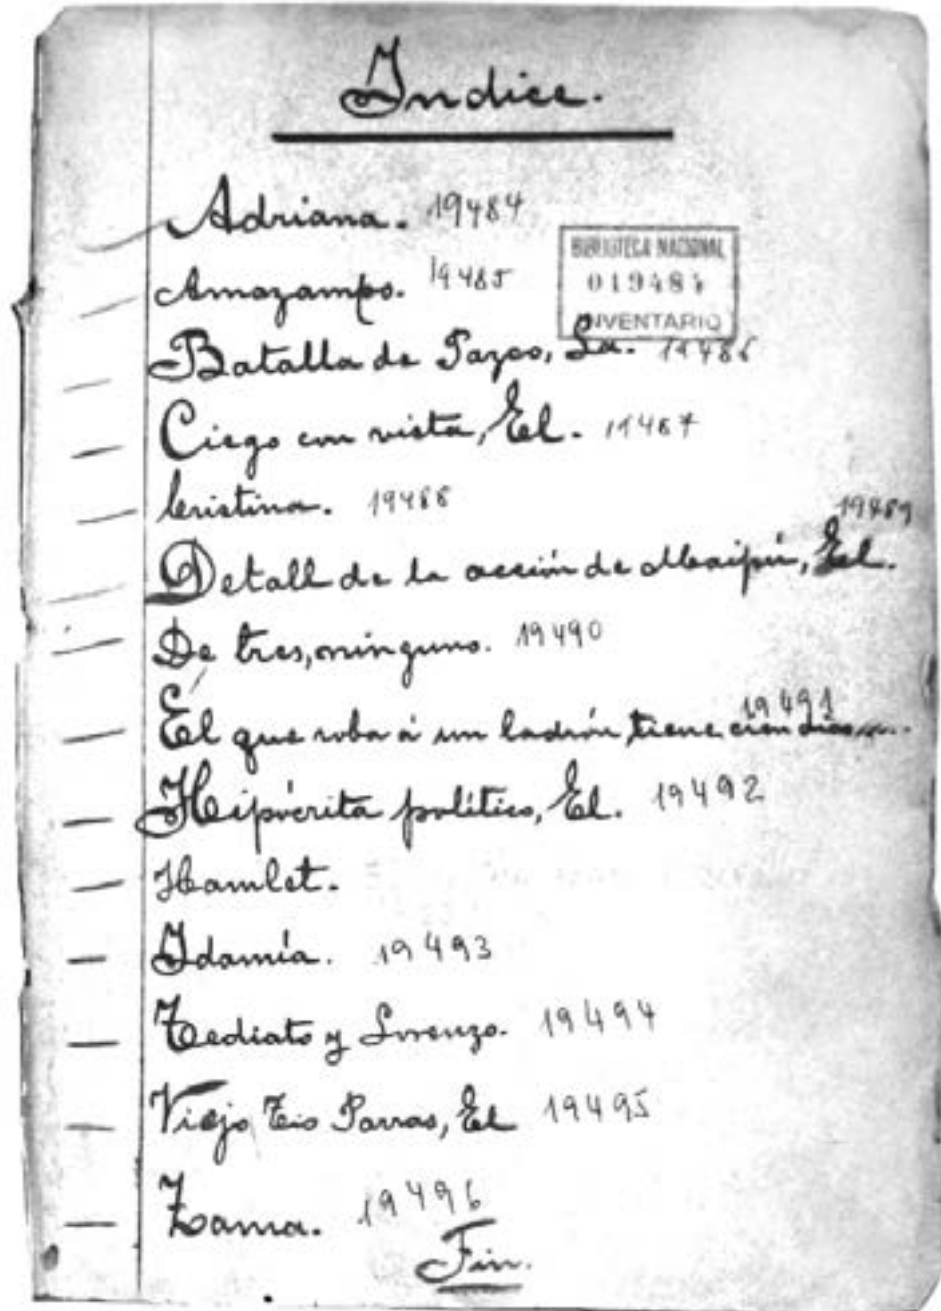 Indice.
Adriana. 19484
Amazampo. 19485
BIBLIOTECA NACIONAL
019484
INVENTARIO
Batalla de Pazco, La. 19486
Ciego con vista, El. 19487
Cristina. 19488
19489
Detall de la acción de Maipú, El.
De tres, ninguno. 19490
19491
El que roba à un ladrón, tiene cien días
Hipócrita político, El. 19492
Hamlet.
Idamía. 19493
Tediato y Lorenzo. 19494
Viejo Tio Parras, El 19495
Zama. 19496
Fin.